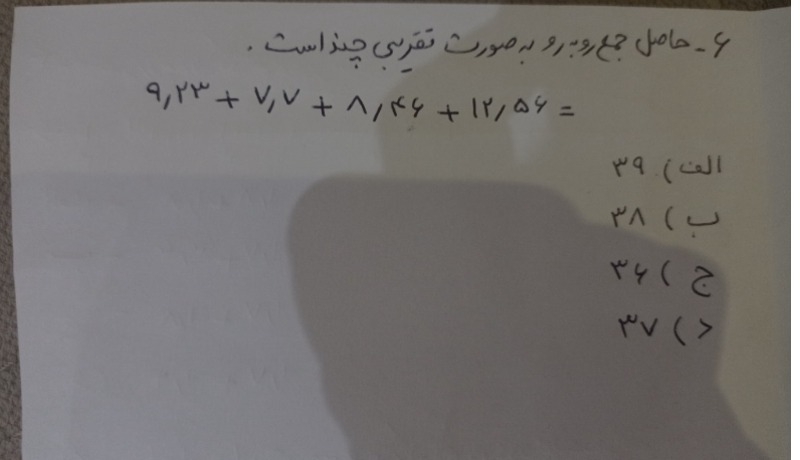 ۶- حاصل جمع روبه رو به صورت تقریبی چند است.
۹٫۲۳ + ۷٫۷ + ۸٫۴۶ + ۱۲٫۵۶ =
الف) ۳۹
ب) ۳۸
ج) ۳۶
د) ۳۷